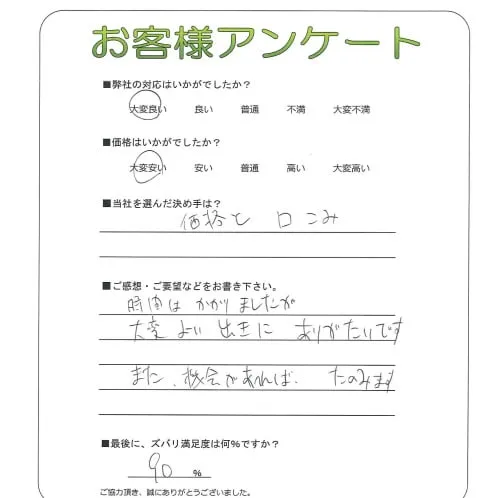 お客様アンケート
■弊社の対応はいかがでしたか？
大変良い 良い 普通 不満 大変不満
■価格はいかがでしたか？
大変安い 安い 普通 高い 大変高い
■当社を選んだ決め手は？
価格と 口こみ
■ご感想・ご要望などをお書き下さい。
時間は かかりましたが
大変 よい 出きに ありがたいです
また、機会があれば、 たのみます
■最後に、ズバリ満足度は何％ですか？
90 ％
ご協力頂き、誠にありがとうございました。